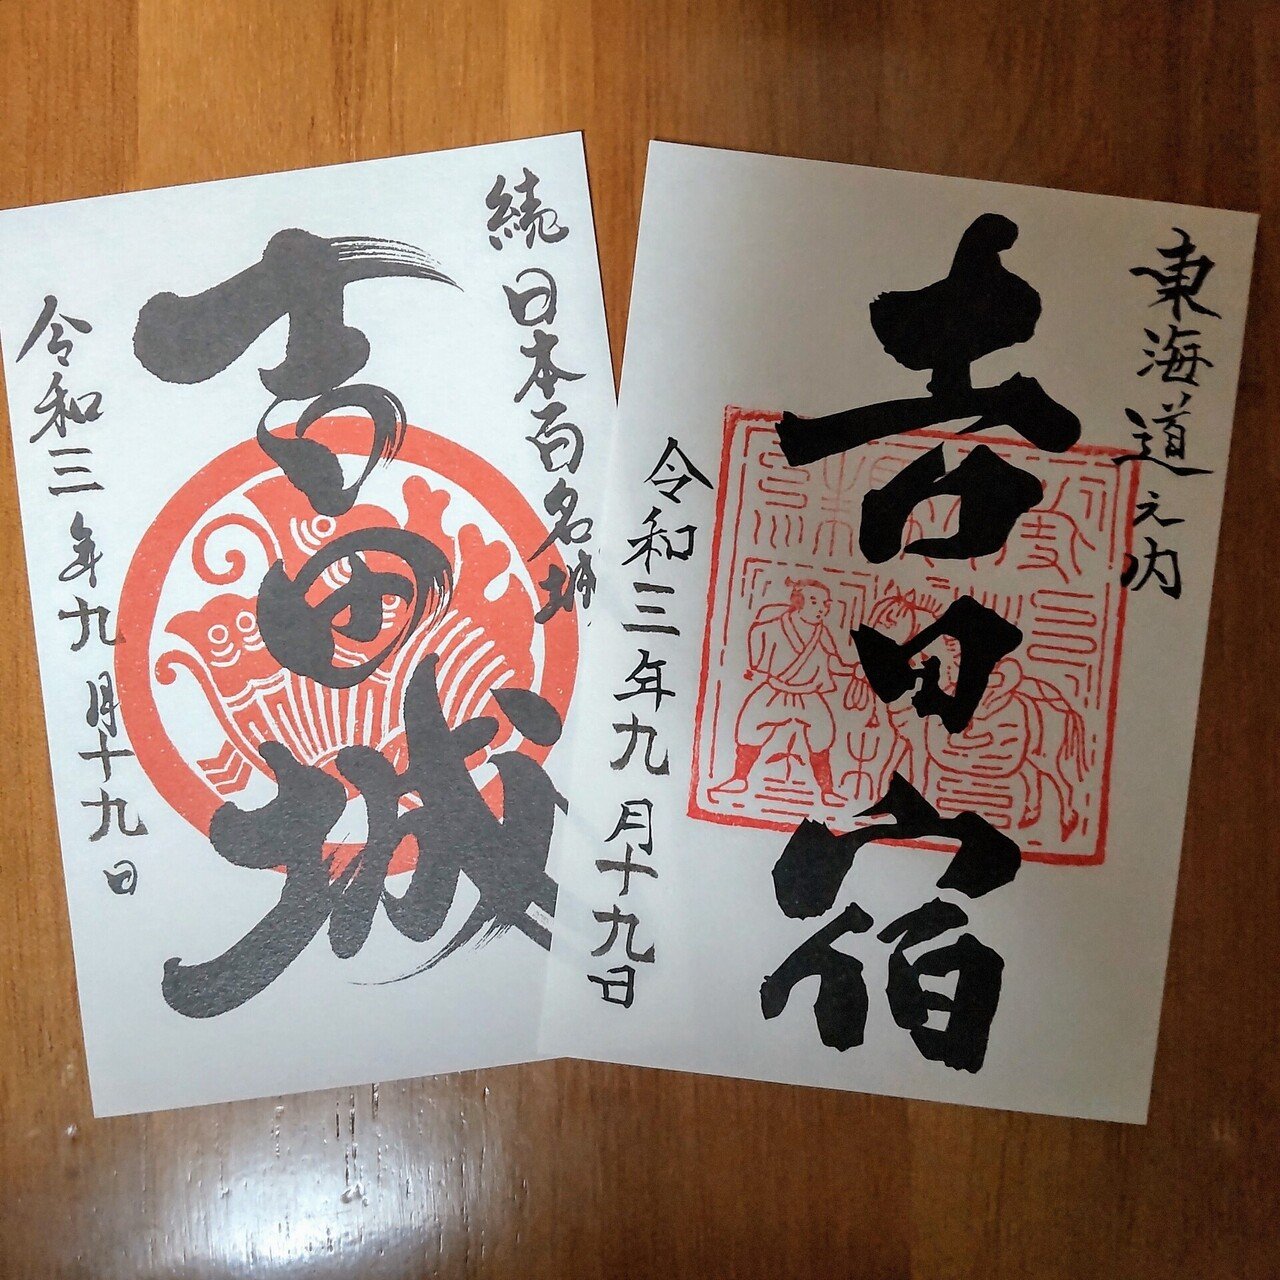 続日本百名城
吉田城
令和三年九月十九日
東海道之内
吉田宿
令和三年九月十九日